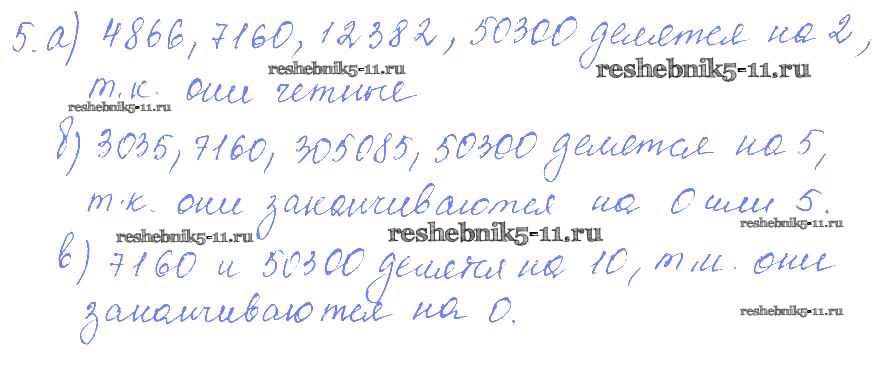 5. а) 4866, 7160, 12382, 50300 делятся на 2,
reshebnik5-11.ru reshebnik5-11.ru
т.к. они четные
reshebnik5-11.ru
б) 3035, 7160, 305085, 50300 делятся на 5,
т.к. они заканчиваются на 0 или 5.
reshebnik5-11.ru reshebnik5-11.ru reshebnik5-11.ru
в) 7160 и 50300 делятся на 10, т.к. они
заканчиваются на 0.
reshebnik5-11.ru